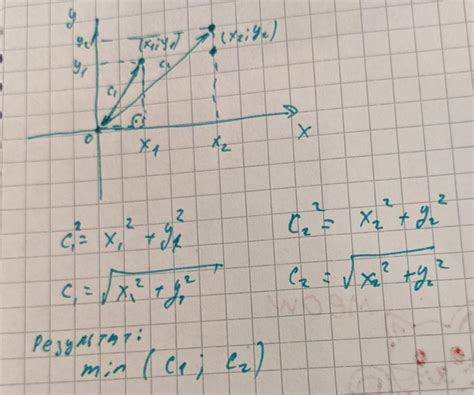 y
y₂
(x₁; y₁)
(x₂; y₂)
y₁
c₁
c₂
0
x₁
x₂
x
c₁² = x₁² + y₁²
c₂² = x₂² + y₂²
c₁ = √x₁² + y₁²
c₂ = √x₂² + y₂²
Результат:
min (c₁; c₂)